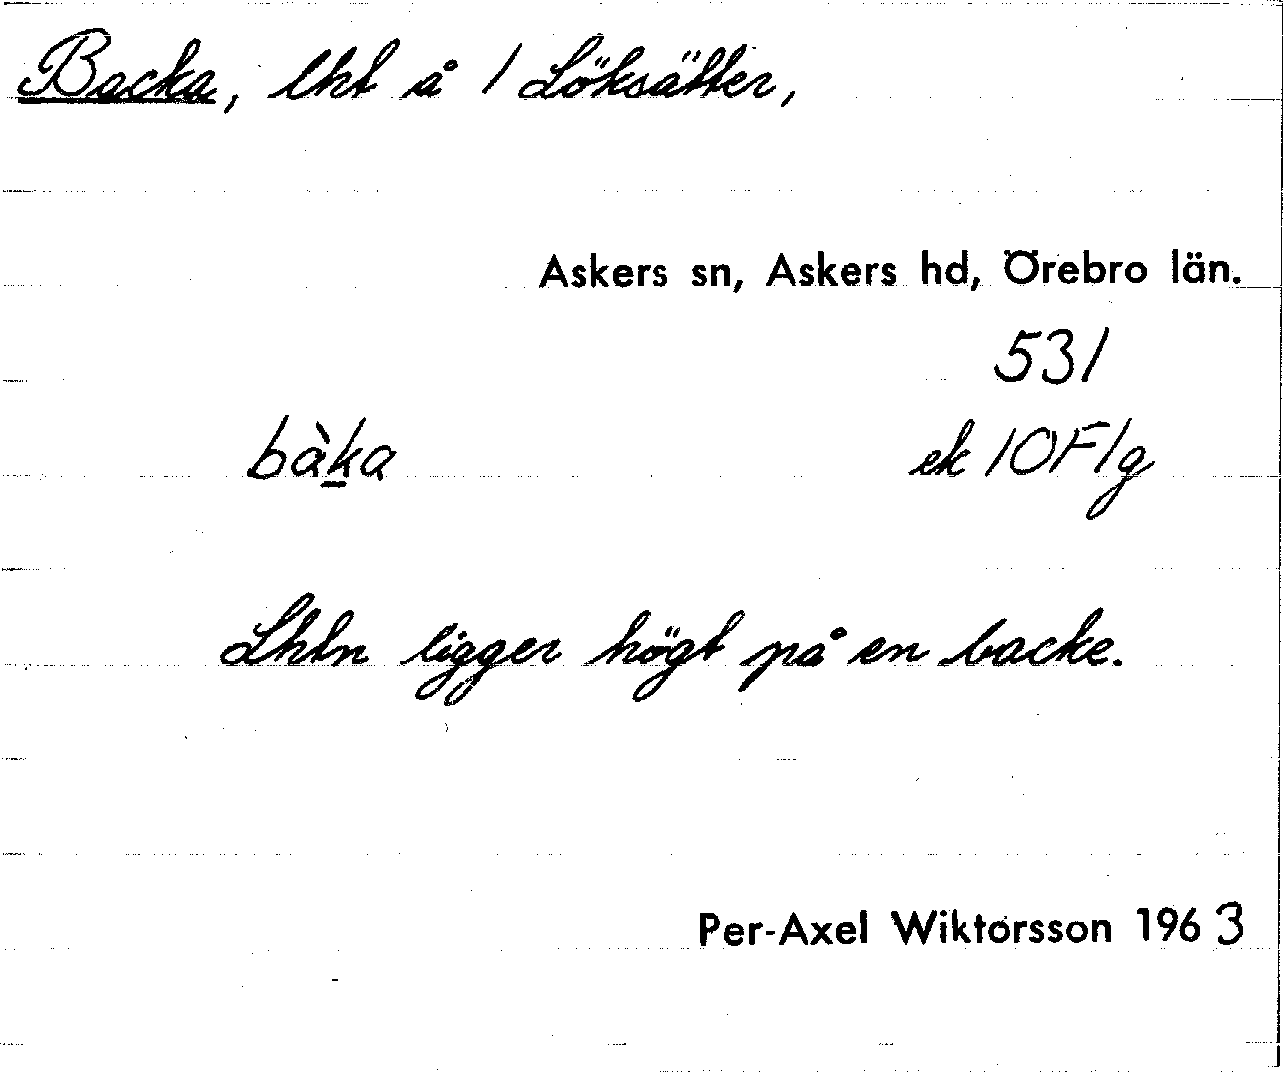 Backa, lht å 1 Löksätter,
Askers sn, Askers hd, Örebro län.
531
bàka
ek 10F1g
Lhtn ligger högt på en backe.
Per-Axel Wiktorsson 1963